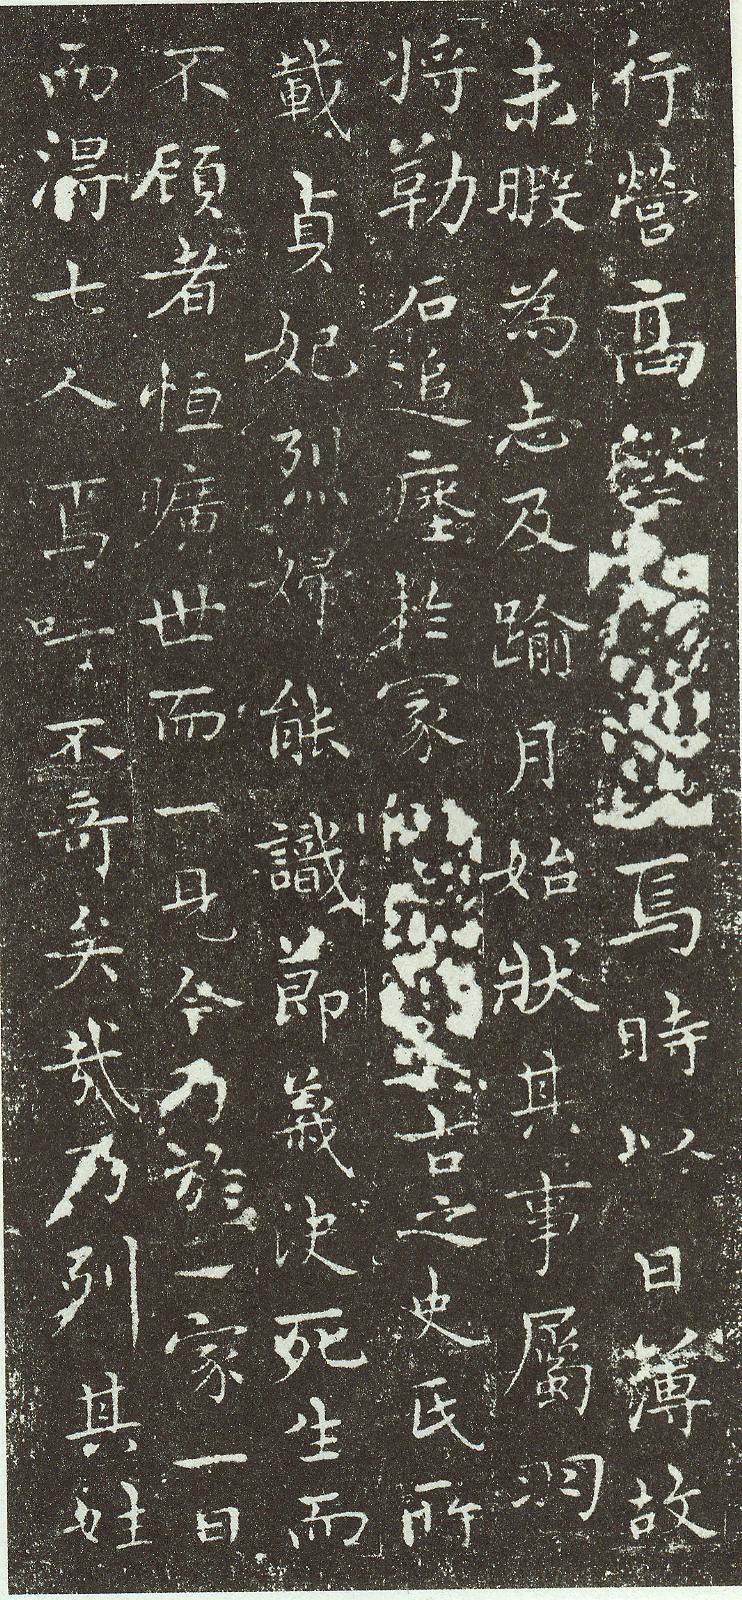 行營高焉時以日薄故
未暇為志及踰月始狀其事屬羽
將勒石追瘞於冢古之史氏所
載貞妃烈婦能識節義決死生而
不顧者恒曠世而一見今乃於一家一日
而得七人焉吁不竒矣哉乃列其姓